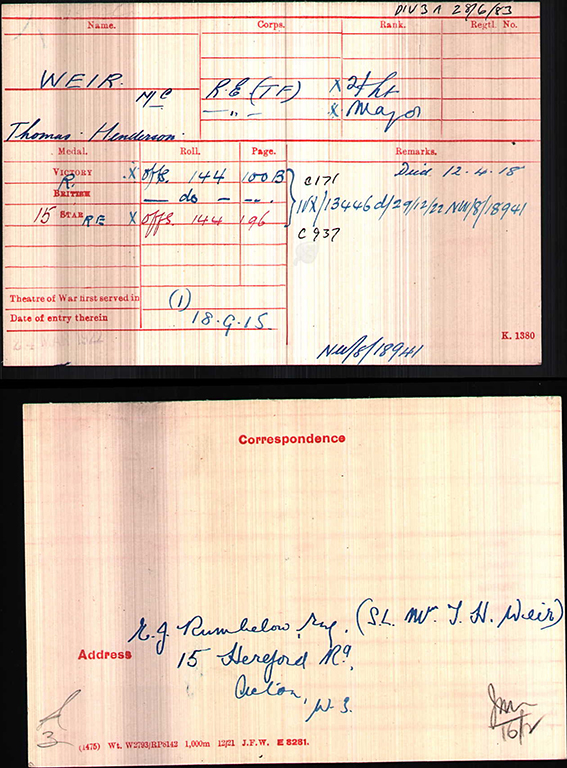 DIV 3 A 28/6/83
Name. Corps. Rank. Regtl. No.
WEIR. MC R.E (TF) X 2/Lt
— „ — X Major
Thomas Henderson.
Medal. Roll. Page. Remarks.
VICTORY X Offs. 144 100B C171 Died 12.4.18
R. BRITISH — do — — „ . IVX/13446d/29/12/22 NW/8/18941
15 STAR RE X Offs. 144 196 C937
Theatre of War first served in (1)
Date of entry therein 18.9.15
K. 1380
NW/8/18941
Correspondence
E.J. Rumbelow, Esq. (S.L. Mr T. H. Weir)
Address 15 Hereford Rd,
Acton,
W.3.
A
3
16/2
(1475) Wt. W2793/RP8142 1,000m 12/21 J.F.W. E 8281.